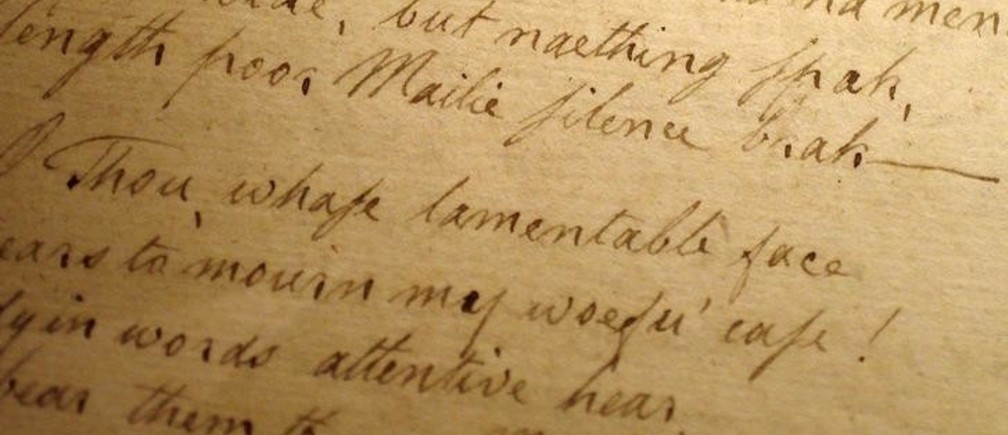 but naething spak,
length poor Mailie silence brak—
O Thou, whase lamentable face
ears to mourn my woefu' case!
dyin words attentive hear,
bear them t